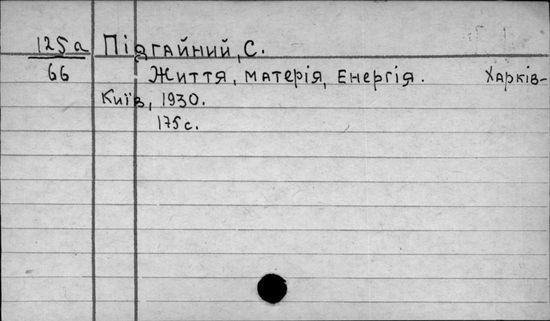 125а Підгайний, С.
66 Життя, матерія, енергія. Харків-
Київ, 1930.
175 с.